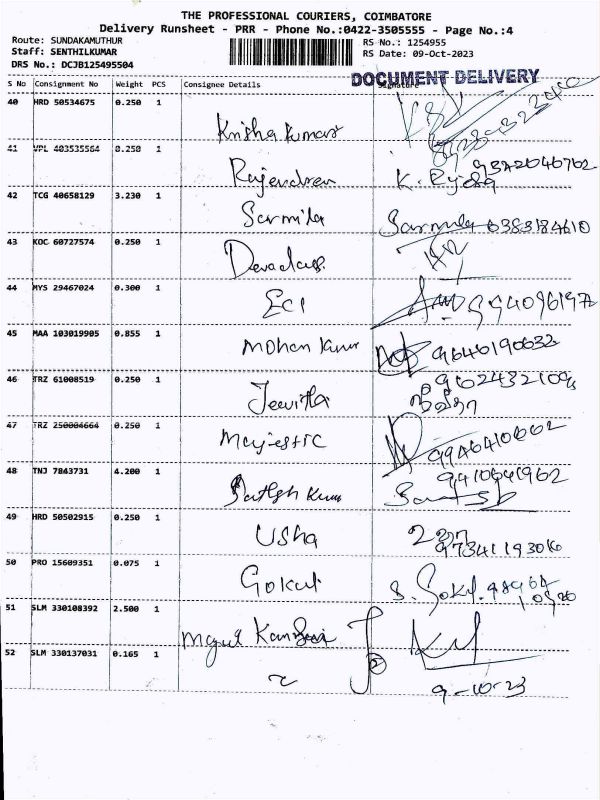 THE PROFESSIONAL COURIERS, COIMBATORE
Delivery Runsheet - PRR - Phone No.:0422-3505555 - Page No.:4
Route: SUNDAKAMUTHUR
RS No.: 1254955
Staff: SENTHILKUMAR
RS Date: 09-Oct-2023
DRS No.: DCJB125495504
DOCUMENT DELIVERY
S No Consignment No Weight PCS Consignee Details Signature
40 HRD 50534675 0.250 1
Krishakumar
41 VPL 403535564 0.250 1
Rajendran K. Raja
42 TCG 40658129 3.230 1
Sarmila Sarmila 6383184610
43 KOC 60727574 0.250 1
Devadas
44 MYS 29467024 0.300 1
ECI 994096197
45 MAA 103019905 0.855 1
Mohan Kumar 9640190632
46 TRZ 61008519 0.250 1
Jeevitha
47 TRZ 250004664 0.250 1
Majestic
48 TNJ 7843731 4.200 1
Sathish Kumar
49 HRD 50502915 0.250 1
Usha
50 PRO 15609351 0.075 1
Gokul S. Gokul
51 SLM 330108392 2.500 1
52 SLM 330137031 0.165 1
9-10-23